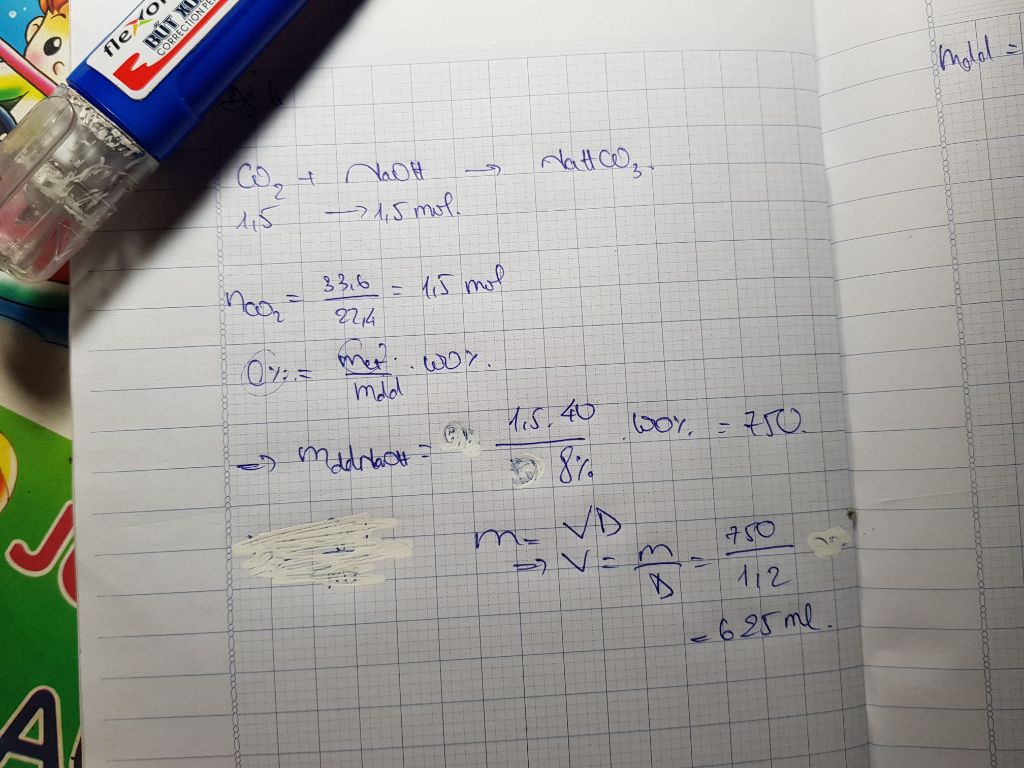 flexo
BÚT XÓ
CORRECTION PE
mdd =
CO₂ + NaOH → NaHCO₃.
1,5 → 1,5 mol.
nCO₂ = 33,6 / 22,4 = 1,5 mol
C%. = mct / mdd . 100%.
=> mddNaOH = 1,5.40 / 8% . 100% = 750.
m = VD
=> V = m / D = 750 / 1,2
= 625 ml.
J
A